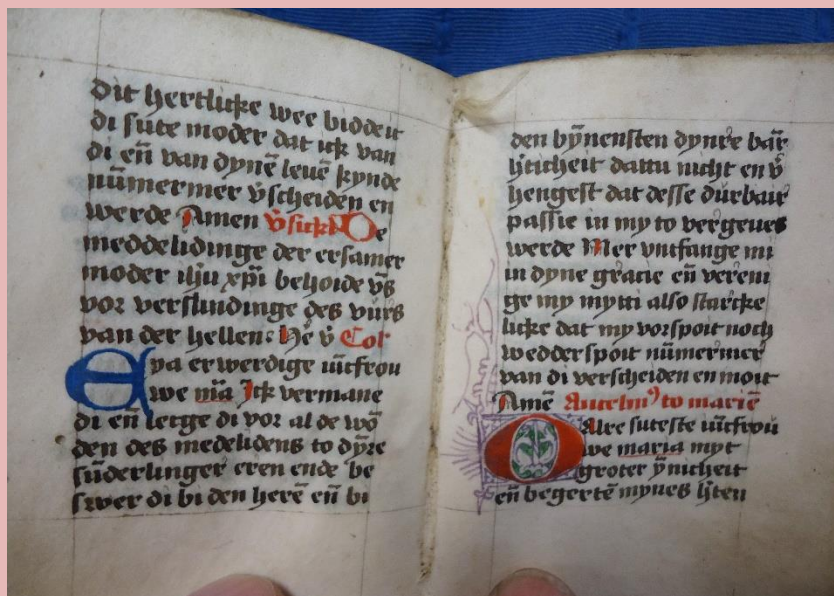 dit hertlicke wee bidde ic
di sute moder dat ick van
di en̄ van dynē leuē kynde
nūmermer v̄scheiden en
werde Amen De
meddelidinge der ersamer
moder ihū xp̄i behoide v̄s
vor verslindinge des vurs
van der hellen Col
Eya erwerdige iūcfrou
we mīa Ick vermane
di en̄ legge di vor al de wō
den des medelidens to dyre
sūderlinger eren ende be
swer di bi den herē en̄ bi
den bynensten dynre bar̄
h̄ticheit dattu nicht en v̄
hengest dat desse durbair
passie in my to vergeues
werde Mer vntfange mi
in dyne gracie en̄ vereni
ge my mytti also starcke
licke dat my vorspoit noch
wedderspoit nūmermer
van di verscheiden en moit
Amē Ancelm⁹ to mariē
O Alre suteste iūcfrou
we maria myt
groter ȳnicheit
en̄ begertē mynes h̄ten